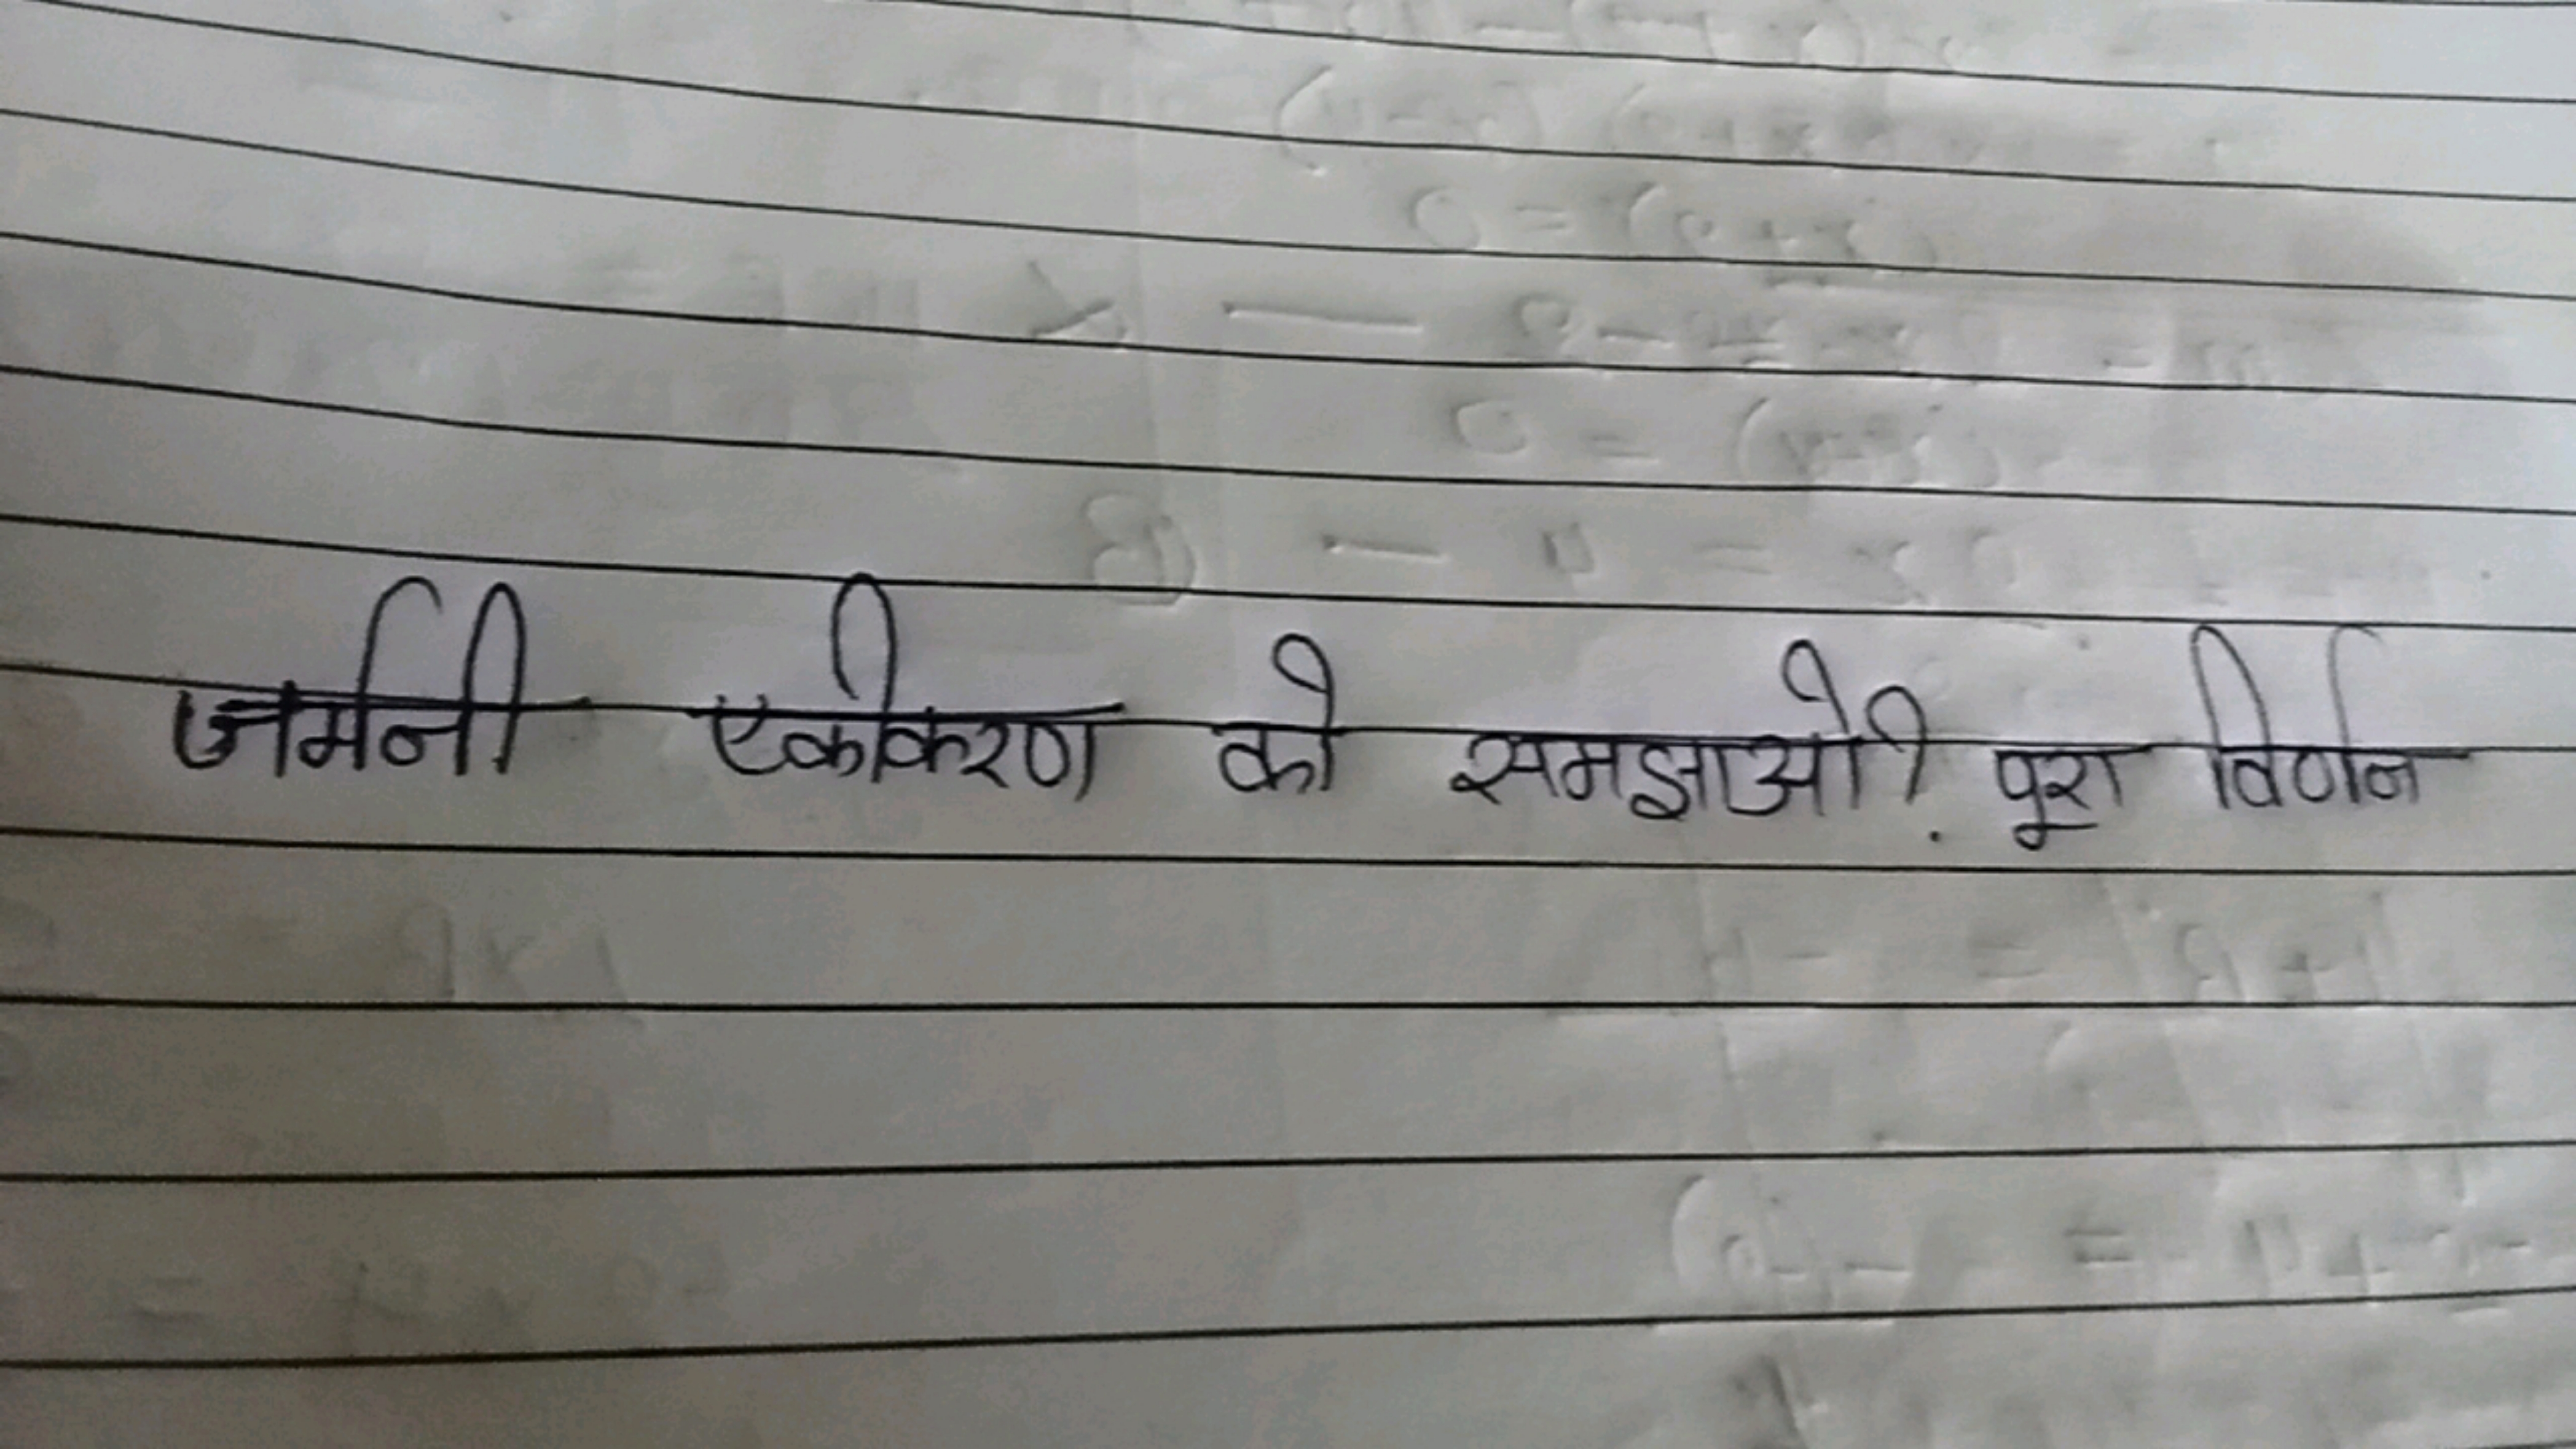 जर्मनी एकीकरण को समझाओ? पूरा विर्णन